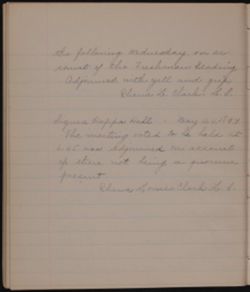 the following Wednesday, on ac
count of the Freshman Reading
Adjourned with yell and
Clark
Sigma Kappa Hall. May
The meeting voted to be held at
6.45 was adjourned on account
of there not being a quorum
present.
Clark